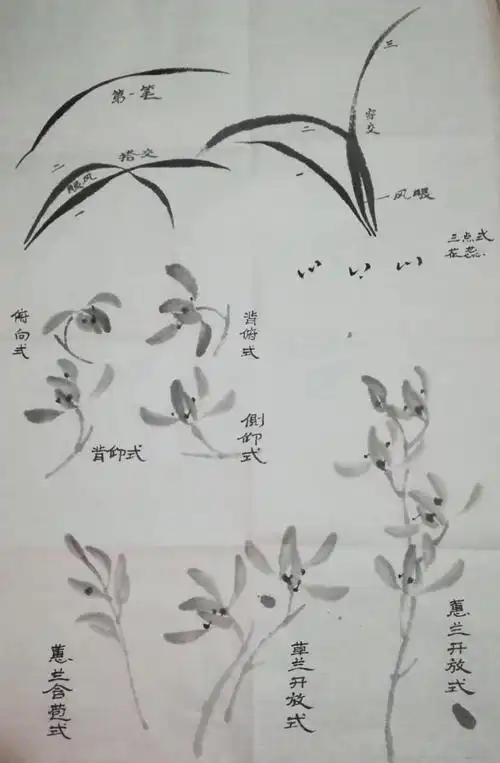 第一笔
二
搭交
眼风
一
三
穿交
二
一
一风眼
三点式
花蕊
俯向式
背俯式
背仰式
侧仰式
蕙兰含苞式
草兰开放式
蕙兰开放式